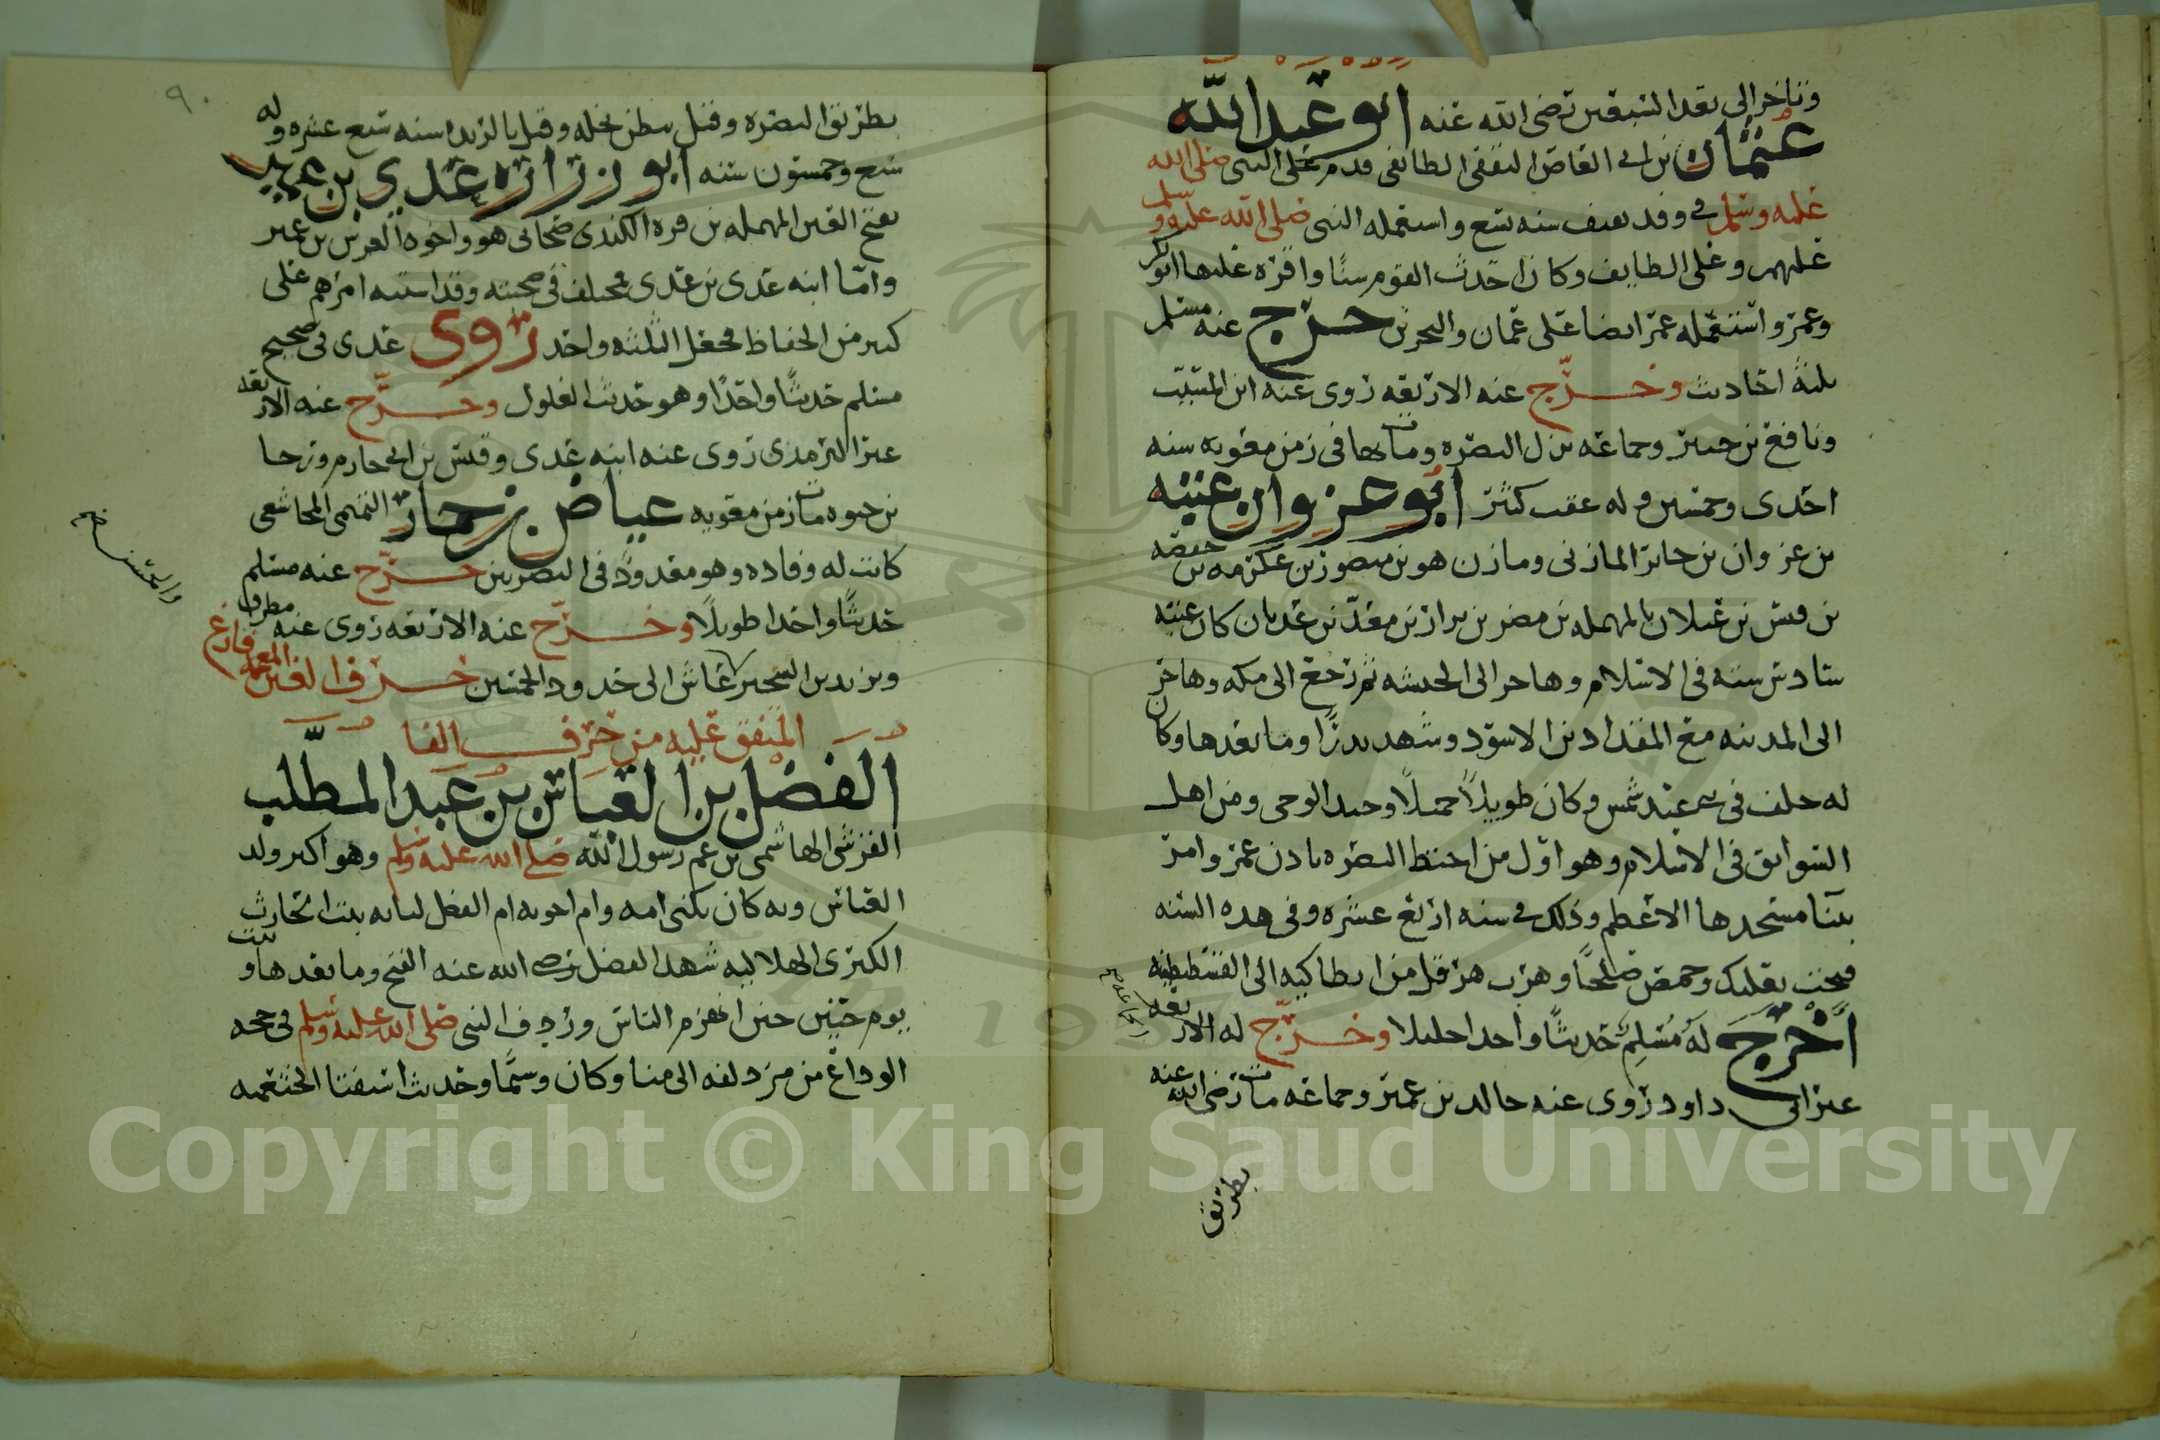 وتاخر الى بعد السبعين رضى الله عنه ابو عبد الله
عثمان بن ابى العاص الثقفى الطائفى قدم على النبى صلى الله
عليه وسلم فى وفد ثقيف سنه تسع واستعمله النبى صلى الله عليه وسلم
عليهم وعلى الطايف وكان احدث القوم سنا واقره عليها ابو بكر
وعمر واستعمله عمر ايضا على عمان والبحرين خرج عنه مسلم
ثلثة احاديث وخرج عنه الاربعه روى عنه ابن المسيب
ونافع بن جبير وجماعه نزل البصره ومات بها فى زمن معويه سنه
احدى وخمسين وله عقب كثير ابو غزوان عتبه
بن غزوان بن جابر المازنى ومازن هو بن منصور بن عكرمه بن خصفه
بن قيس بن عيلان بالمهمله بن مضر بن نزار بن معد بن عدنان كان عتبه
سادس سته فى الاسلام وهاجر الى الحبشه ثم رجع الى مكه وهاجر
الى المدينه مع المقداد بن الاسود وشهد بدرا وما بعدها وكان
له حلف فى بنى عبد شمس وكان طويلا جميلا وحيد الوحى ومن اهل
السوابق فى الاسلام وهو اول من اختط البصره باذن عمر وامر
ببنا مسجدها الاعظم وذلك فى سنه اربع عشره وفى هذه السنه
فتحت بعلبك وحمص صلحا وهرب هرقل من انطاكيه الى القسطنطينيه
اخرج له مسلم حديثا واحدا جليلا وخرج له الاربعه
غير ابى داود روى عنه خالد بن عمير وجماعه مات رضى الله عنه
بطريق
بطريق البصره وقيل ببطن نخله وقيل بالربذه سنه سبع عشره وله
سبع وخمسون سنه ابو زراره عدى بن عميره
بفتح العين المهمله بن فروه الكندى صحابى هو واخوه العرس بن عمير
واما ابنه عدى بن عدى فمختلف فى صحبته وقد اشتبه امرهم على
كثير من الحفاظ فجعل الثلثه واحد روى عدى فى صحيح
مسلم حديثا واحدا وهو حديث الغلول وخرج عنه الاربعه
غير الترمذى روى عنه ابنه عدى وقيس بن ابى حازم ورجا
بن حيوه مات زمن معويه عياض بن حمار التميمى المجاشعى
كانت له وفاده وهو معدود فى البصريين خرج عنه مسلم
حديثا واحدا طويلا وخرج عنه الاربعه روى عنه مطرف
ويزيد بن الشخير عاش الى حدود الخمسين حرف الغين المعجمه فارغ
المتفق عليه من حرف الفا
الفضل بن العباس بن عبد المطلب
القرشى الهاشمى بن عم رسول الله صلى الله عليه وسلم وهو اكبر ولد
العباس وبه كان يكنى امه وام اخوته ام الفضل لبابه بنت الحارث
الكبرى الهلاليه شهد الفضل رضى الله عنه الفتح وما بعدها وثبت
يوم حنين حين انهزم الناس وردف النبى صلى الله عليه وسلم فى حجه
الوداع من مزدلفه الى منا وكان وسيما وحديث استفتا الخثعميه
٩٠
Copyright © King Saud University